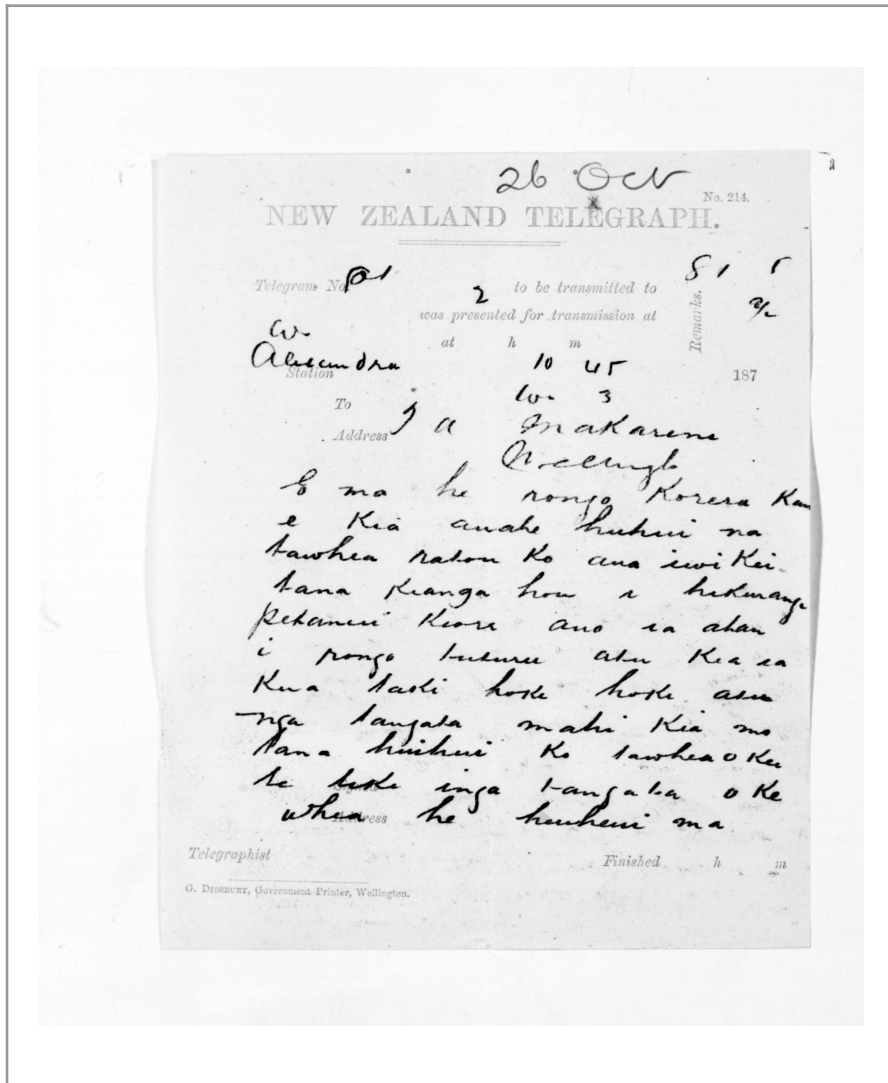 26 Oct
No. 214.
NEW ZEALAND TELEGRAPH.
Telegram No. 2 to be transmitted to 81 5
was presented for transmission at 2/2
Remarks.
at h m
Alexandra 10 45
Station 187
To w. 3
Address a Makarini
E ma he rongo Korero Kau
e Kia auahe huihui na
tawhea ratou Ko ana iwi Kei
tana Kianga hou i hikurangi
petamui Kiore ano ia atau
i rongo tuturu atu Kia ia
Kua taki hoke hoke atu
nga tangata mahi Kia mo
tana huihui Ko tawhea o Kei
te inga tangata o Ke
whea he huihui ma
Address
Telegraphist Finished h m
G. DIDSBURY, Government Printer, Wellington.